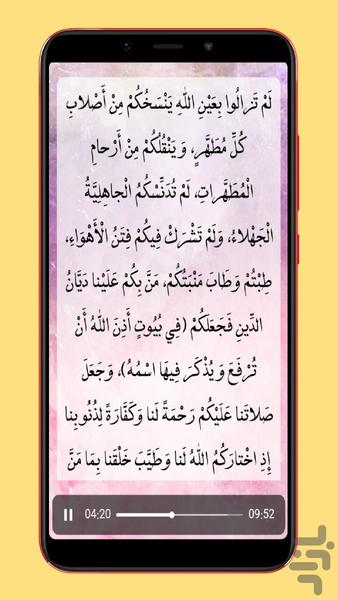 لَمْ تَزالُوا بِعَيْنِ اللهِ يَنْسَخُكُمْ مِنْ أَصْلابِ
كُلِّ مُطَهَّرٍ، وَيَنْقُلُكُمْ مِنْ أَرْحامِ
الْمُطَهَّراتِ، لَمْ تُدَنِّسْكُمُ الْجاهِلِيَّةُ
الْجَهْلاءُ، وَلَمْ تَشْرَكْ فِيكُمْ فِتَنُ الْأَهْوَاءِ،
طِبْتُمْ وَطابَ مَنْبَتُكُمْ، مَنَّ بِكُمْ عَلَيْنا دَيَّانُ
الدِّينِ فَجَعَلَكُمْ (فِي بُيُوتٍ أَذِنَ اللهُ أَنْ
تُرْفَعَ وَيُذْكَرَ فِيهَا اسْمُهُ)، وَجَعَلَ
صَلاتَنا عَلَيْكُمْ رَحْمَةً لَنا وَكَفَّارَةً لِذُنُوبِنا
إِذِ اخْتارَكُمُ اللهُ لَنا وَطَيَّبَ خَلْقَنا بِما مَنَّ
04:20 09:52